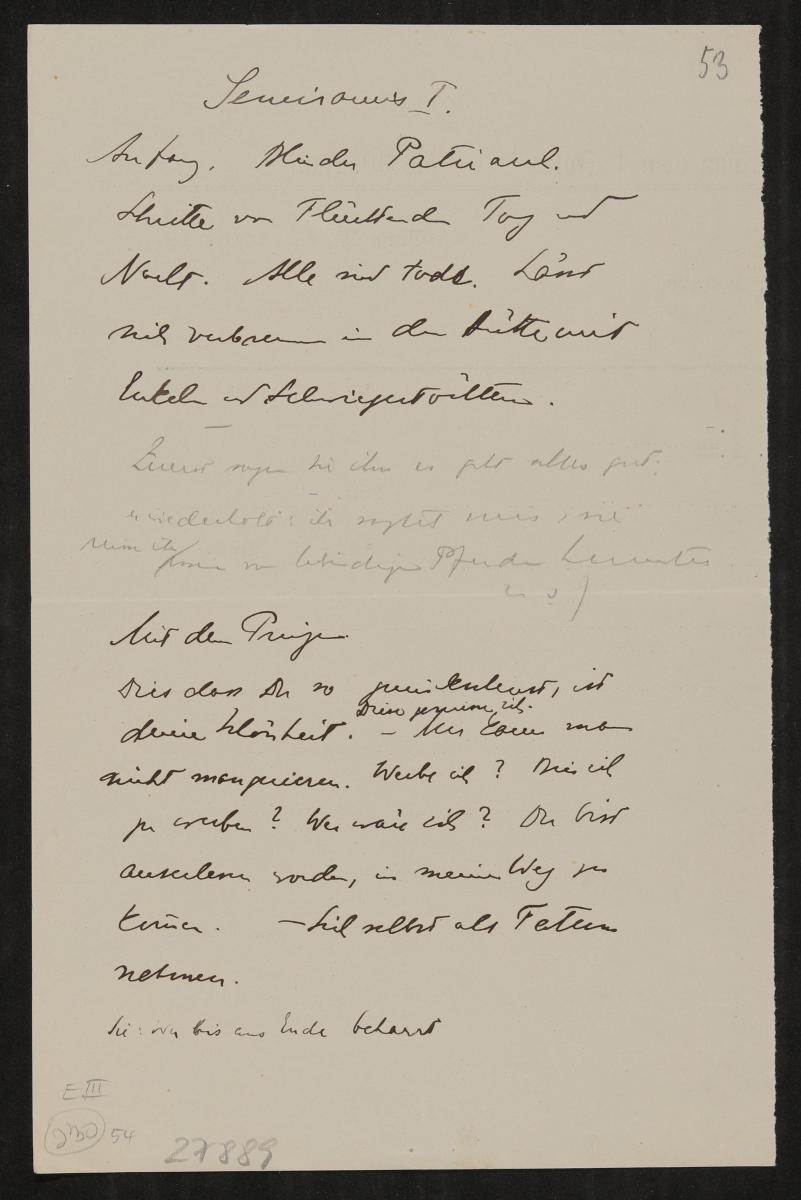 53
Semiramis I.
Anfang. Blinder Patriarch.
Schritte von Flüchtenden Tag und
Nacht. Alle sind todt. Lässt
sich verbrennen in der Hütte mit
Enkeln und Schwiegertöchtern.
Zuerst sagen sie ihm es geht alles gut.
er wiederholt: ihr sagtet mir, sie
von lebendigen Pferden
Mit dem Jungen
Dies dass Du so, ist
deine Schönheit. – Mir kann man
Diese geniesse ich.
nicht manquieren. Werbe ich? Bin ich
zu werben? Wer wäre ich? Du bist
auserlesen worden, in meinen Weg zu
kom̅en. – Sich selbst als Fatum
nehmen.
Sie: wer bis ans Ende beharrt
E III
230 54
27889